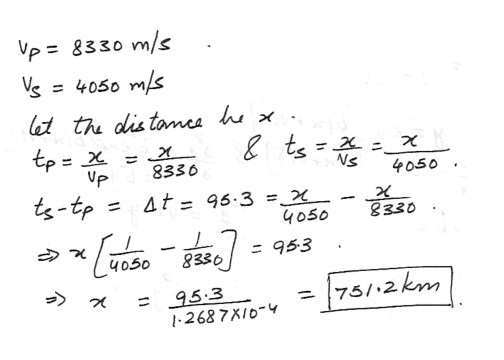 Vp = 8330 m/s .
Vs = 4050 m/s
let the distance be x .
tp = x/Vp = x/8330 & ts = x/Vs = x/4050 .
ts-tp = Δt = 95.3 = x/4050 - x/8330 .
⇒ x [1/4050 - 1/8330] = 95.3 .
⇒ x = 95.3/1.2687X10-4 = 751.2km .